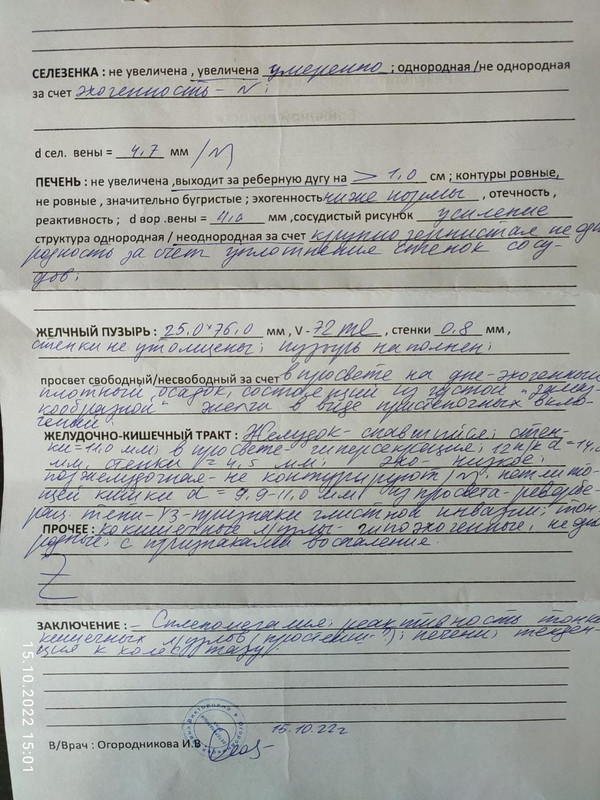 СЕЛЕЗЕНКА : не увеличена , увеличена умеренно ; однородная /не однородная
за счет эхогенность - N ;
d сел. вены = 4,7 мм /N
ПЕЧЕНЬ : не увеличена ,выходит за реберную дугу на > 1,0 см ; контуры ровные,
не ровные , значительно бугристые ; эхогенность ниже нормы , отечность ,
реактивность ; d вор .вены = 4,0 мм ,сосудистый рисунок усиление
структура однородная / неоднородная за счет крупнозернистая неодно
родность за счет уплотнения стенок сосу-
дов;
ЖЕЛЧНЫЙ ПУЗЫРЬ : 25.0*76.0 мм , V - 72 ml , стенки 0.8 мм ,
стенки не утолщены; пузырь наполнен;
просвет свободный/несвободный за счет в просвете на дне-эхогенный
плотный осадок, состоящий из густой "замаз
кообразной" желчи в виде пристеночных вклю-
чений
ЖЕЛУДОЧНО-КИШЕЧНЫЙ ТРАКТ : Желудок - спавшийся; стен-
ки =11.0 мм; в просвете - гиперсекреция; 12 п/к d =14.0
мм, стенки = 4,5 мм; эхо - низкое;
поджелудочная - не контурируют /N; петли то
щей кишки d = 9.9-11.0 мм; из просвета - ревербе-
рац. тени - УЗ-признаки глистной инвазии; тон-
ПРОЧЕЕ : кокишечные л/узлы - гипоэхогенные, неодно
родные; с признаками воспаления.
Z
ЗАКЛЮЧЕНИЕ : - Спленомегалия; реактивность тонко
кишечных л/узлов (простейш-?); печени; тенден-
ция к холестазу;
15.10.22г
В/Врач : Огородникова И.В
15.10.2022 15:01